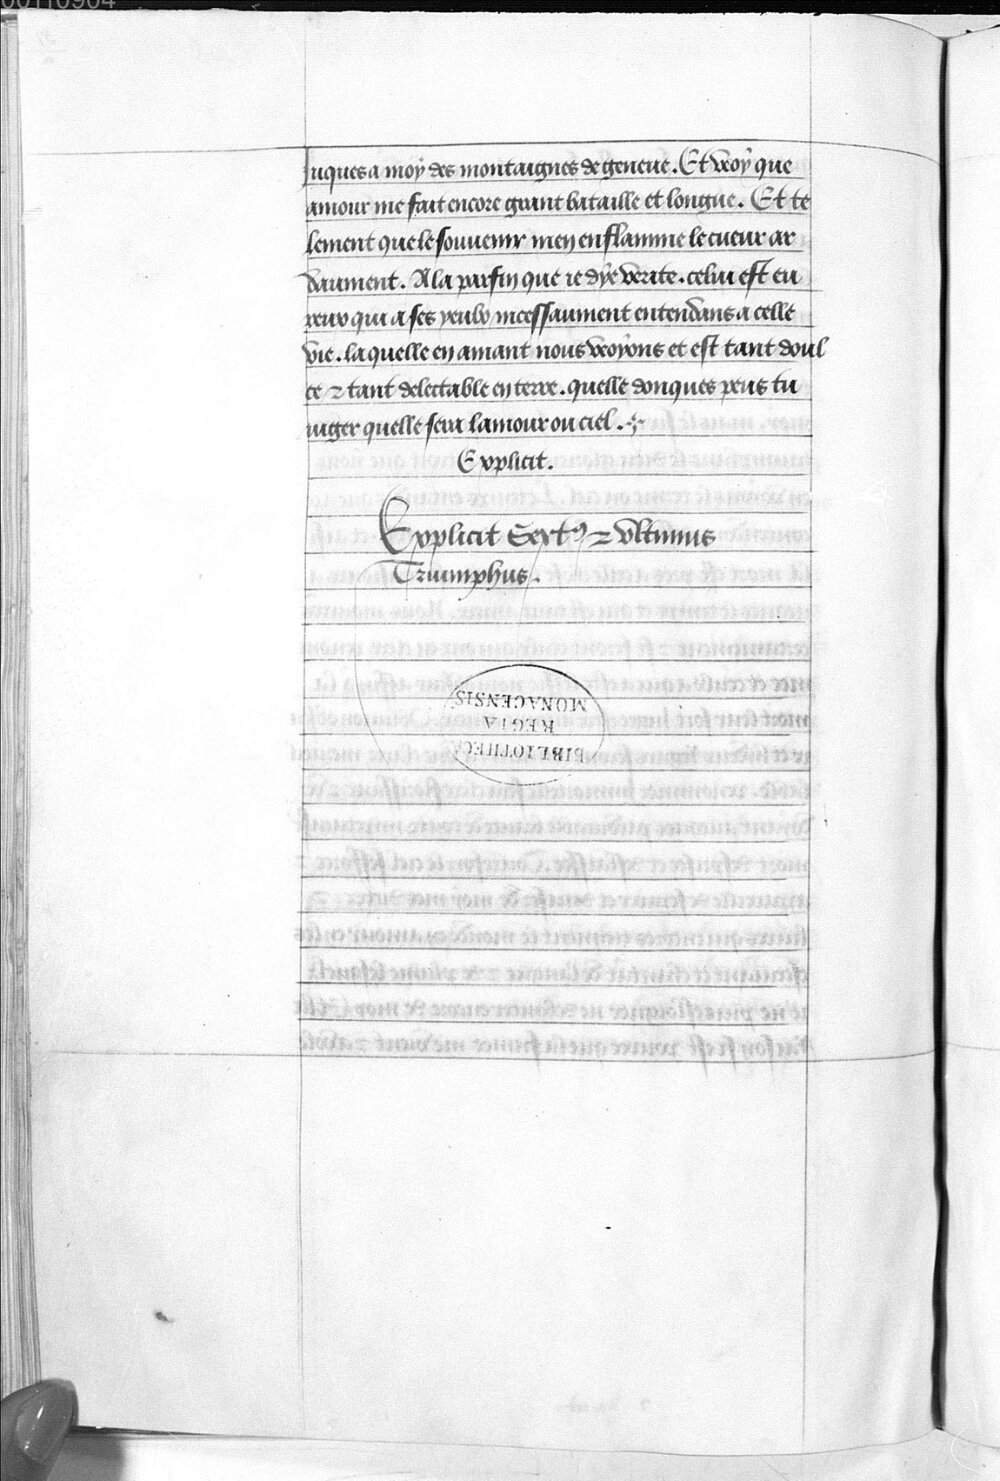 00110904
iuques a moy des montaignes de geneue. Et voy que
amour me fait encore grant bataille et longue. Et te
lement que le souuenir men enflamme le cueur ar
daument. A la parfin que ie dye verite. celui est eu
reux qui a ses yeulx incessaument entendans a celle
vie. laquelle en amant nous voyons et est tant doul
ce ⁊ tant delectable en terre. quelle donques peus tu
iuger quelle sera lamour ou ciel.
Explicit.
Explicit Sextꝰ ⁊ vltimus
Triumphus.
BIBLIOTHECA
REGIA
MONACENSIS